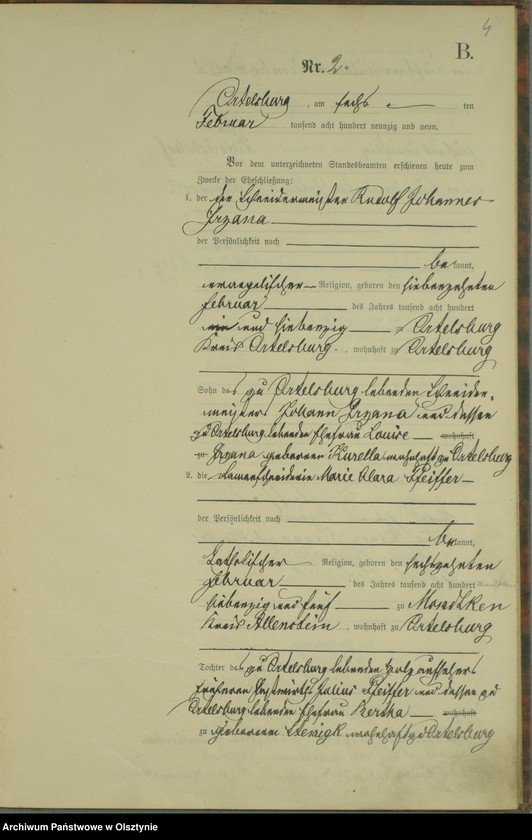 4
B.
Nr. 2.
Ortelsburg, am sechs ten
Februar tausend acht hundert neunzig und neun.
Vor dem unterzeichneten Standesbeamten erschienen heute zum
Zwecke der Eheschließung:
1. der der Schneidermeister Rudolf Johannes
der Persönlichkeit nach
be kannt,
evangelischer Religion, geboren den siebenzehnten
Februar des Jahres tausend acht hundert
ein und siebenzig zu Ortelsburg
Kreis Ortelsburg, wohnhaft zu Ortelsburg
Sohn des zu Ortelsburg lebenden Schneider-
meisters Johann und dessen
zu Ortelsburg lebenden Ehefrau Louise wohnhaft
zu geborenen Kurella wohnhaft zu Ortelsburg
2. die Damenschneiderin Marie Clara Pfeiffer
der Persönlichkeit nach
be kannt,
katholischer Religion, geboren den sechszehnten
Februar des Jahres tausend acht hundert
siebenzig und fünf zu Mondtken
Kreis Allenstein, wohnhaft zu Ortelsburg
Tochter des zu Ortelsburg lebenden Holzaufsehers
früheren Gastwirths Julius Pfeiffer und dessen zu
Ortelsburg lebenden Ehefrau Bertha wohnhaft
zu geborenen wohnhaft zu Ortelsburg
Archiwum Państwowe w Olsztynie